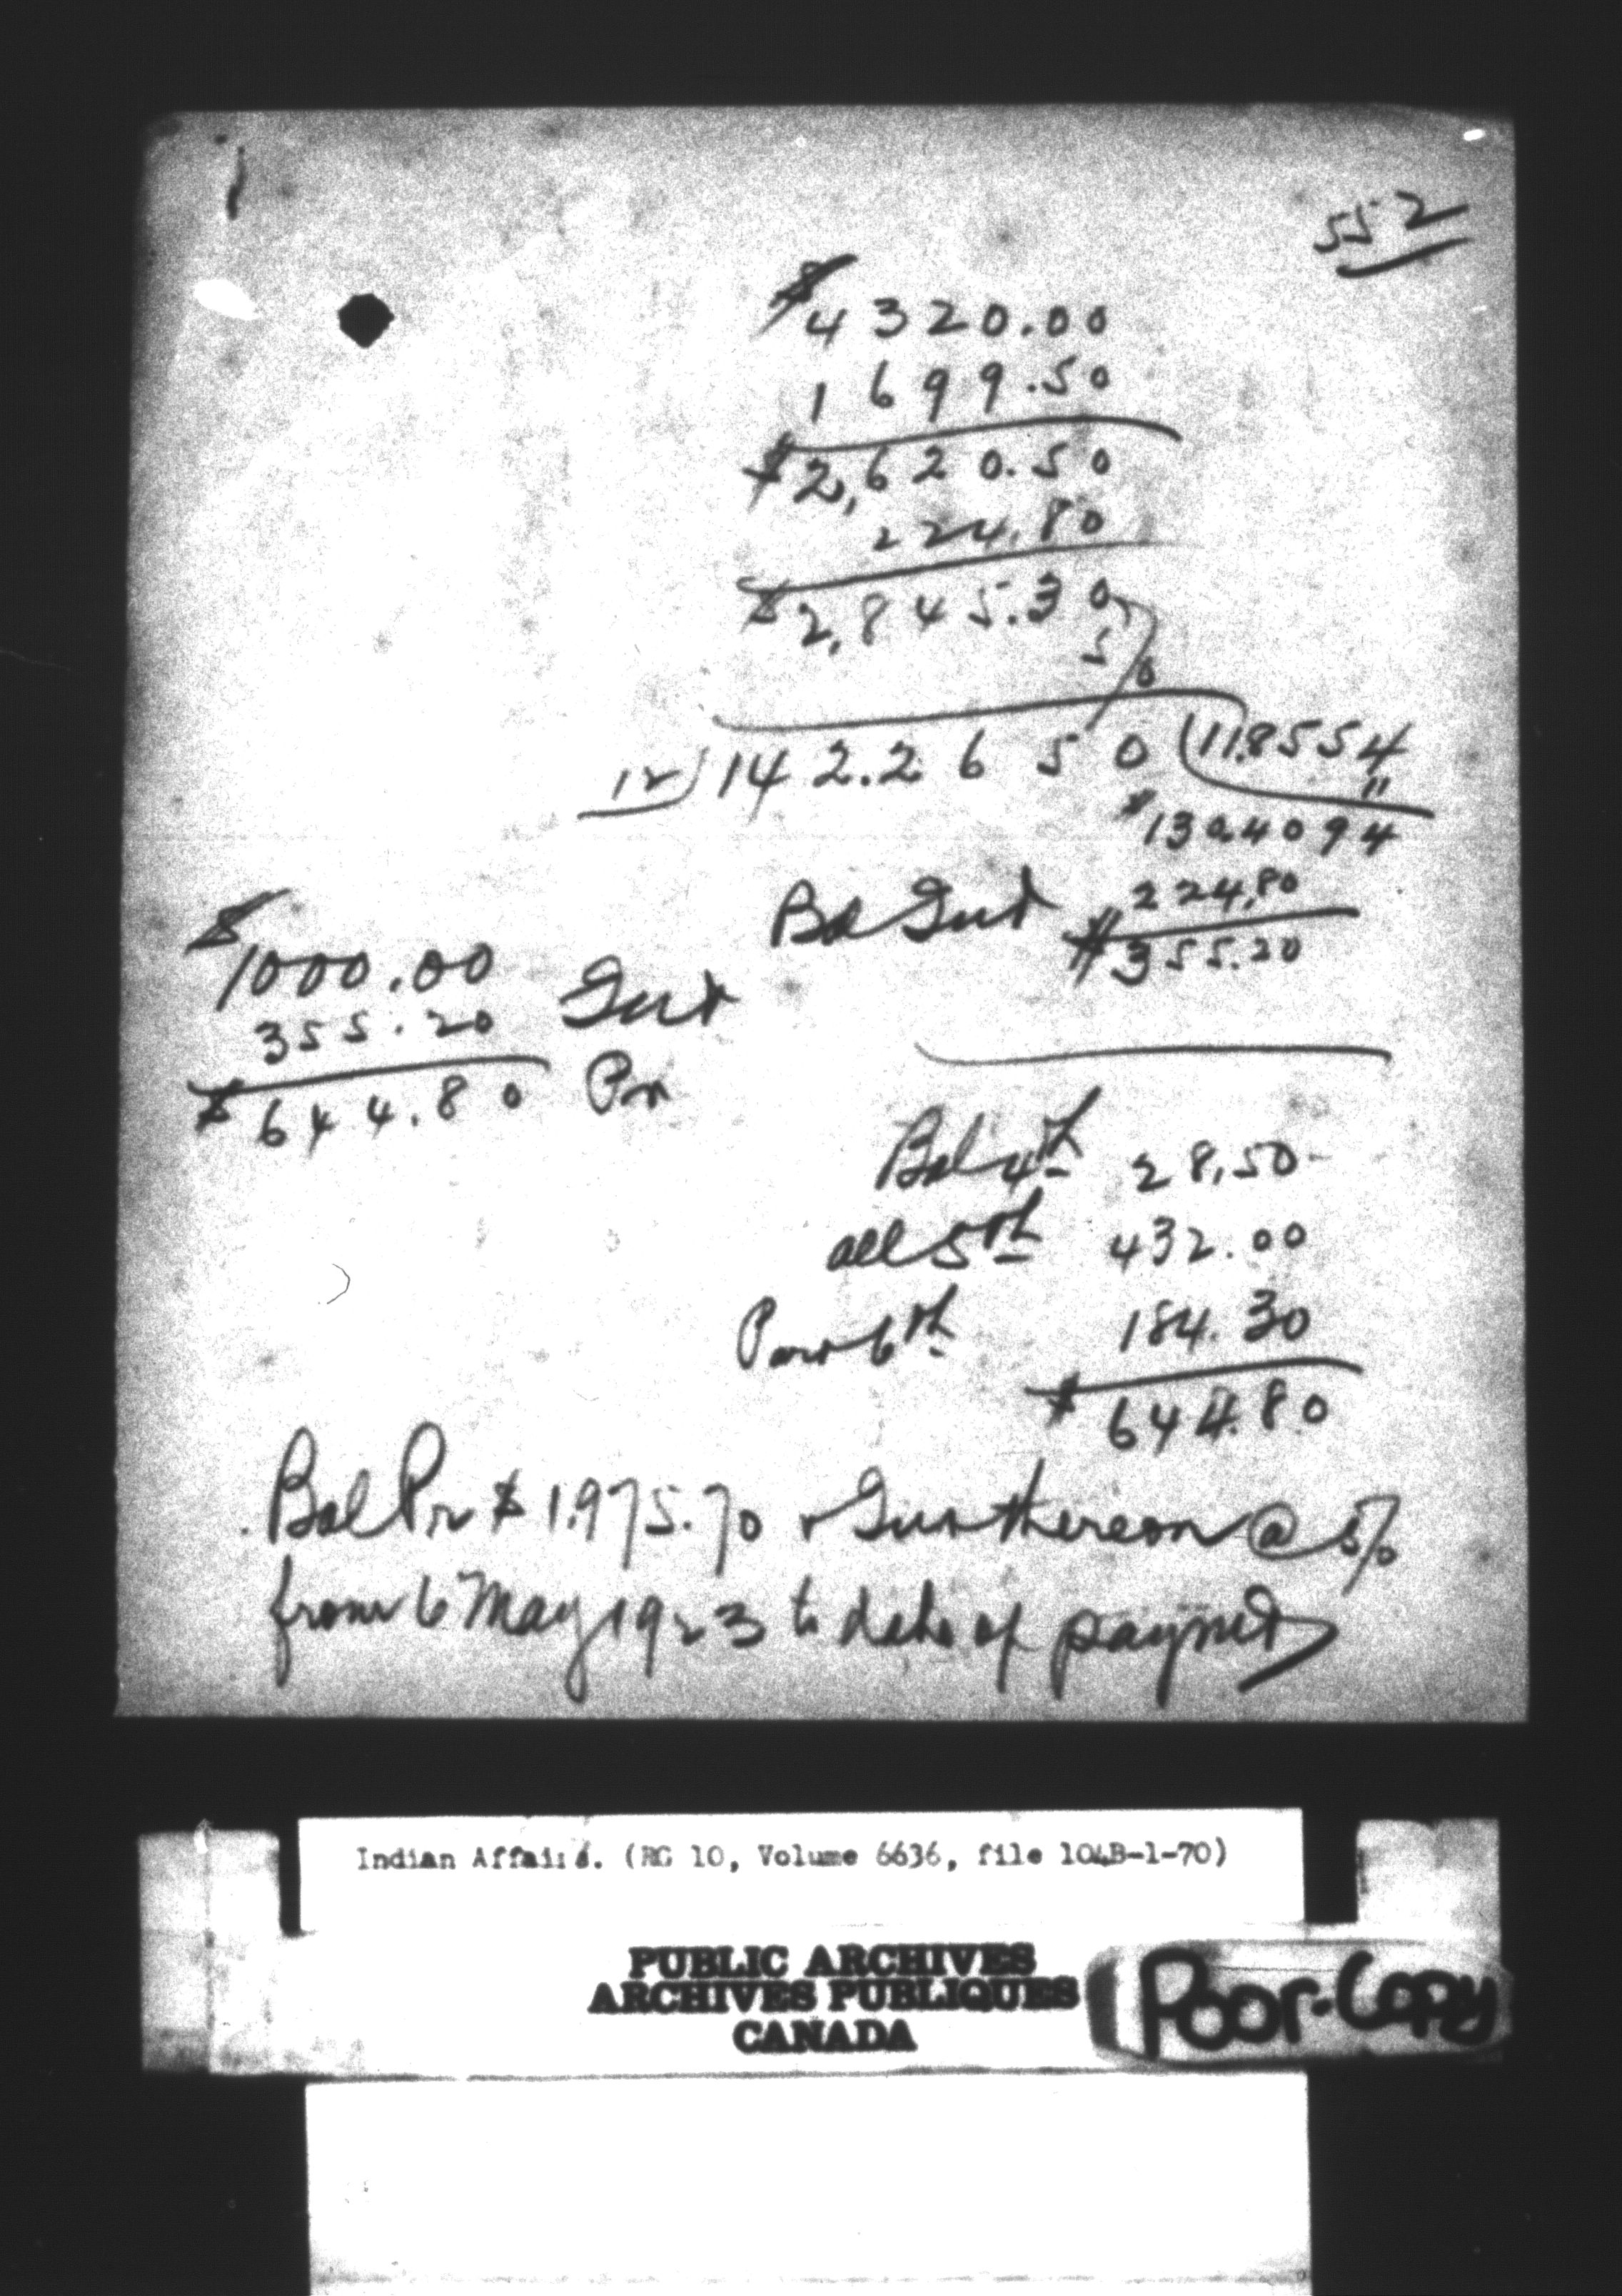 552
$4320.00
1699.50
$2,620.50
224.80
$2,845.30
5%
12)142.2650(11.8554
11
$130.4094
224.80
Bal Int $355.20
$1000.00
355.20 Int
$644.80 Pr
Bal 4th 28.50
all 5th 432.00
Part 6th 184.30
$644.80
Bal Pr $1,975.70 & Int thereon @ 5%
from 6 May 1923 to date of paymt
Indian Affairs. (RG 10, Volume 6636, file 104B-1-70)
PUBLIC ARCHIVES
ARCHIVES PUBLIQUES
CANADA
Poor-Copy